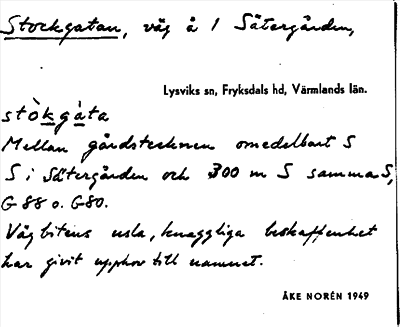 Stockgatan, väg å 1 Sätergården,
Lysviks sn, Fryksdals hd, Värmlands län.
stòkgàta
Mellan gårdstecknen omedelbart S
S i Sätergården och 300 m S samma S,
G 88 o. G80.
Vägbitens usla, knaggliga beskaffenhet
har givit upphov till namnet.
ÅKE NORÉN 1949